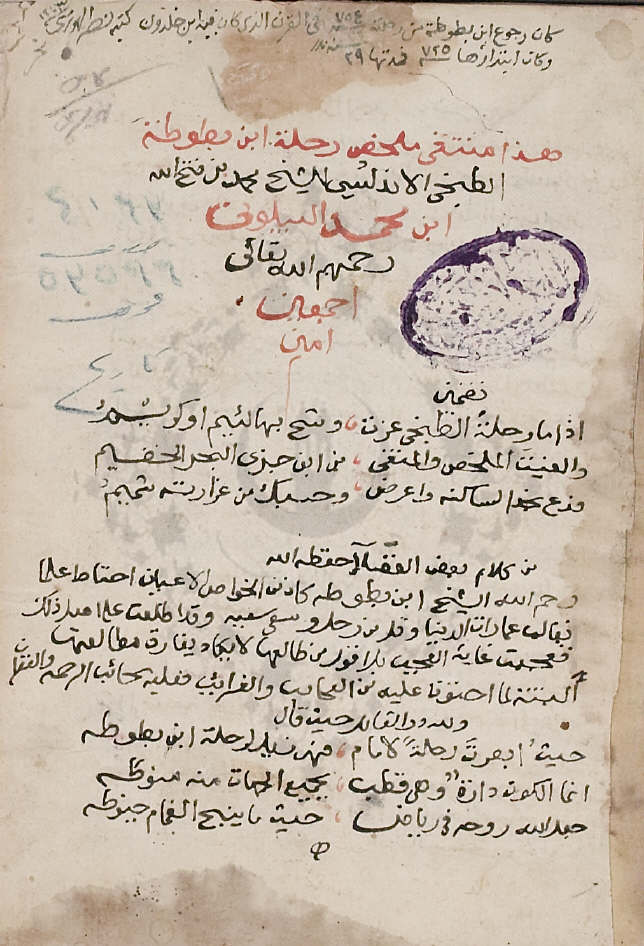 كان رجوع ابن بطوطة من رحلته سنة ٧٥٤ في القرن الذي كان فيه ابن خلدون كتبه نصر
وكان ابتداؤها ٧٢٥ فمدتها ٢٩
هذا منتقى ملخص رحلة ابن بطوطة
الطنجي الاندلسي للشيخ محمد بن فتح الله
ابن محمد البيلوني
رحمهم الله تعالى
اجمعين
امين
تاريخ
تضمين
اذا ما رحلة الطنجي عزت وشح بها لئيم او كريم
والفيت الملخص والمنقى من ابن جزى البحر الخضيم
فدع واعرض وحسبك من غزارته شميم
من كلام بعض الفقهاء حفظه الله
رحم الله الشيخ ابن بطوطه كان من الخواص الاعيان احتاط علما
بغالب عمارات الدنيا وقد اطلعت على
فعجبت غاية العجب بل اقول من طالعها لا يكاد يفارق مطالعتها
البتة لما احتوت عليه من العجايب والغرايب فعليه سحائب الرحمة
ولله در القائل حيث قال
حيث ابصرت رحلة لامام فهي ذيل لرحلة ابن بطوطه
انما الكون دارة وهي قطب بجميع الجهات منه منوطه
جعل الله روحه في رياض حيث ما ينبح الغمام